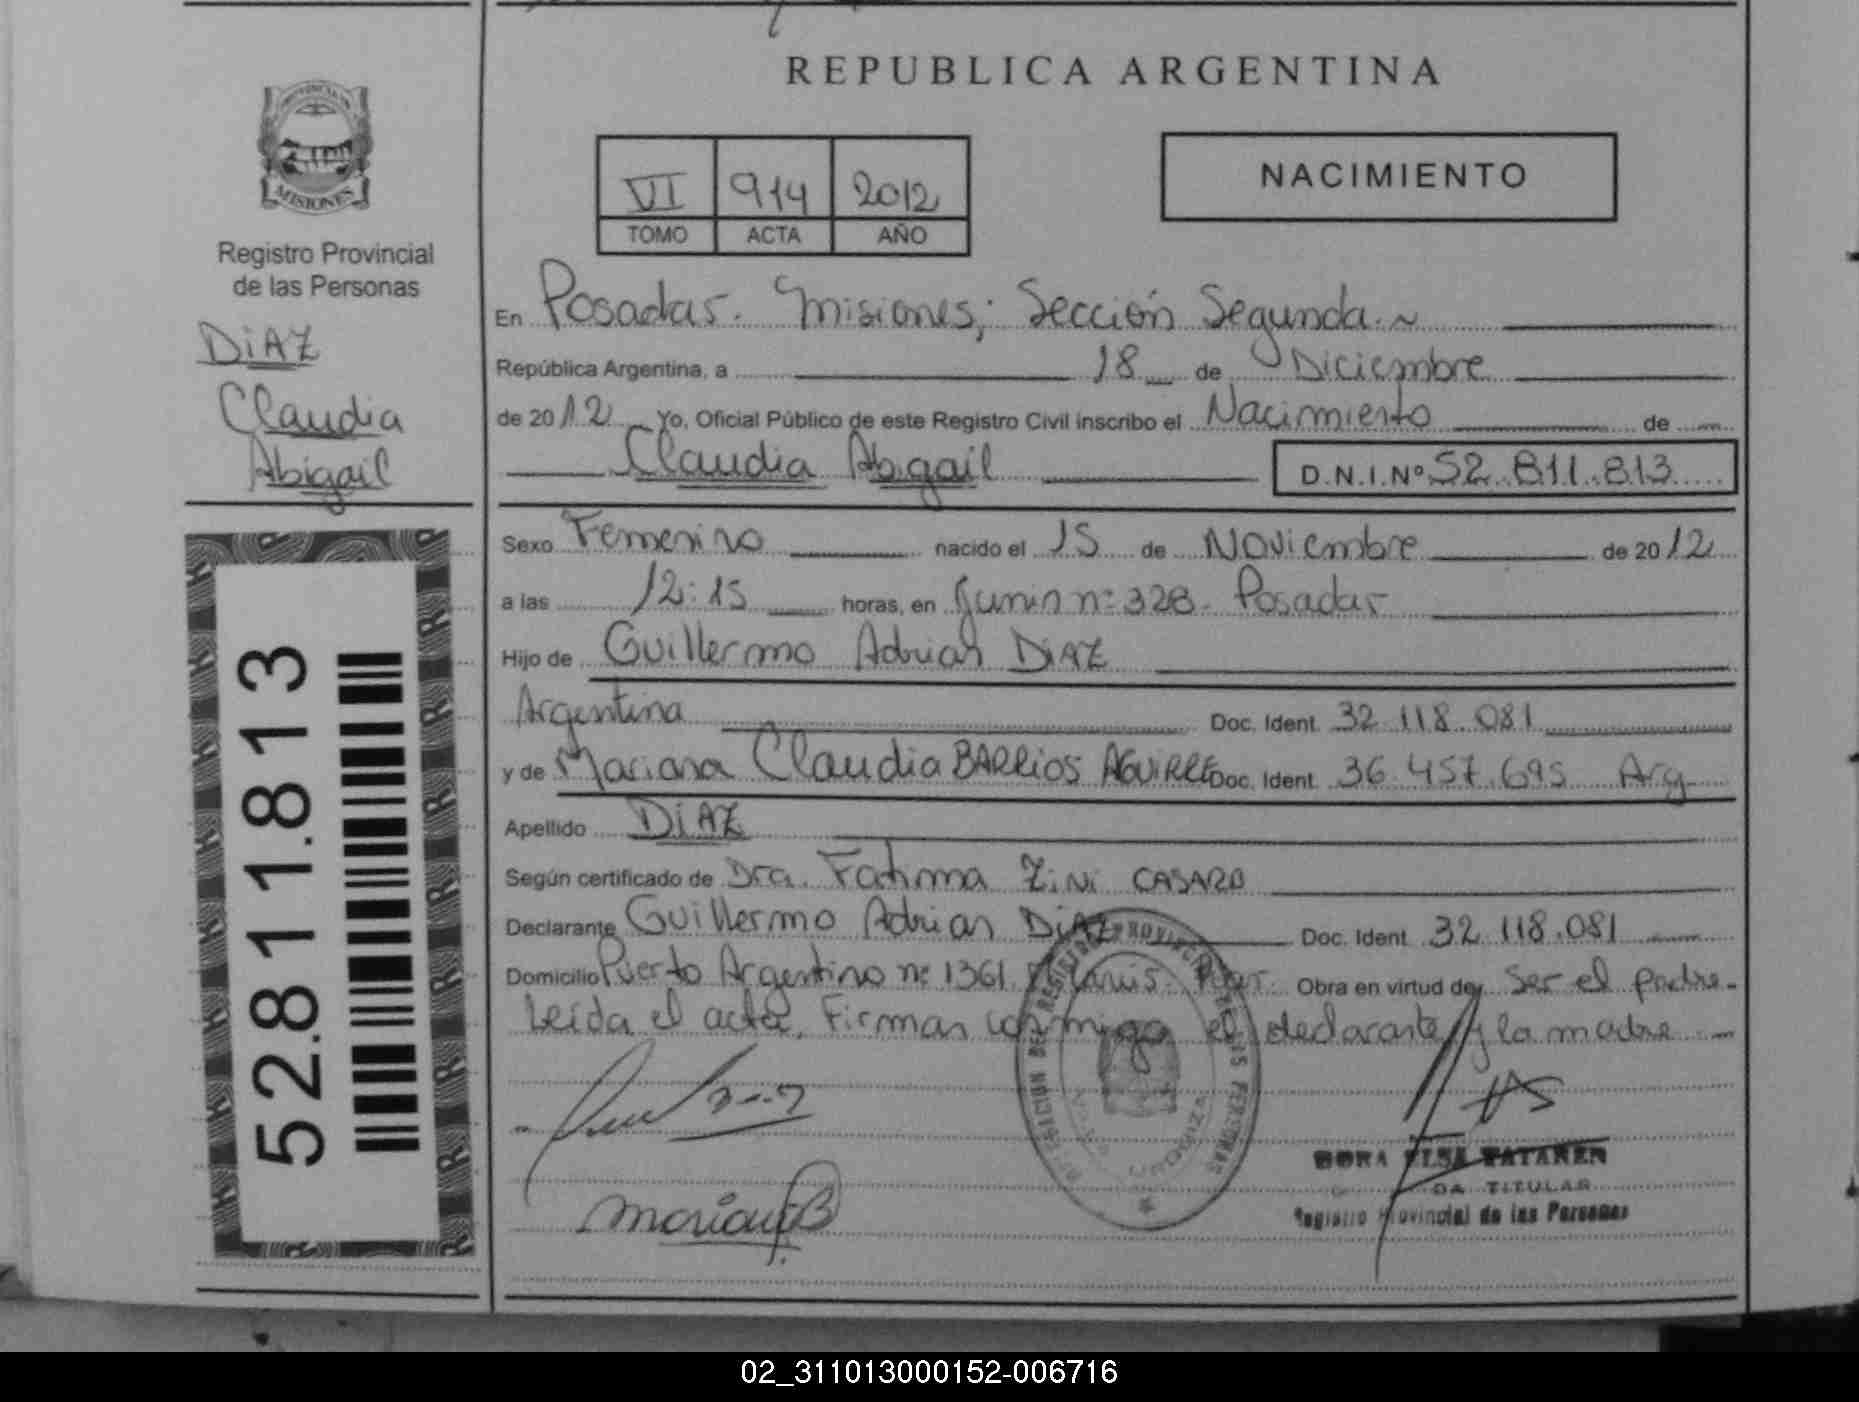 REPUBLICA ARGENTINA
PROVINCIA DE
MISIONES
Registro Provincial
de las Personas
DIAZ
Claudia
Abigail
52.811.813
VI 914 2012
TOMO ACTA AÑO
NACIMIENTO
En Posadas. Misiones; Sección Segunda.~
República Argentina, a 18 de Diciembre
de 2012 Yo, Oficial Público de este Registro Civil inscribo el Nacimiento de
Claudia Abigail D.N.I.Nº 52.811.813
Sexo Femenino nacido el 15 de Noviembre de 2012
a las 12:15 horas, en Junin nº 328- Posadas
Hijo de Guillermo Adrian DIAZ
Argentina Doc. Ident. 32.118.081
y de Mariana Claudia BARRIOS AGUIRRE Doc. Ident. 36.457.695 Arg
Apellido DIAZ
Según certificado de Dra. Fatima Zini CASARO
Declarante Guillermo Adrian DIAZ Doc. Ident. 32.118.081
Domicilio Puerto Argentino nº 1361 Obra en virtud de Ser el padre-
Leída el acta, Firman conmigo el declarante y la madre
Marian B
TITULAR
Registro Provincial de las Personas
02_311013000152-006716